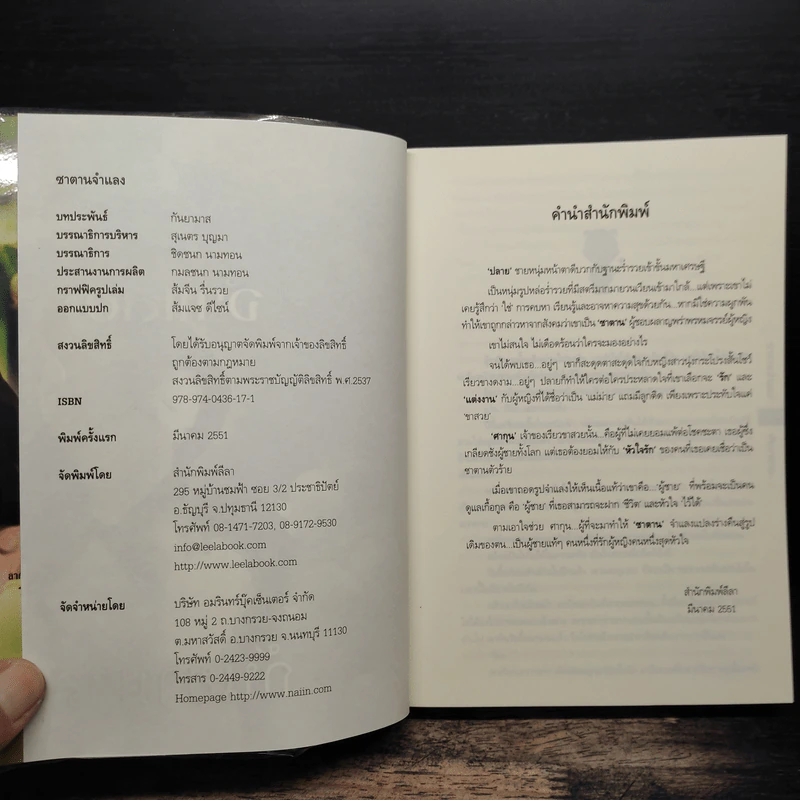 ซาตานจำแลง
บทประพันธ์ กันยามาส
บรรณาธิการบริหาร สุเนตร บุญมา
บรรณาธิการ ชิดชนก นามทอน
ประสานงานการผลิต กมลชนก นามทอน
กราฟฟิครูปเล่ม ส้มจีน รื่นรวย
ออกแบบปก ส้มแจซ ดีไซน์
สงวนลิขสิทธิ์ โดยได้รับอนุญาตจัดพิมพ์จากเจ้าของลิขสิทธิ์
ถูกต้องตามกฎหมาย
สงวนลิขสิทธิ์ตามพระราชบัญญัติลิขสิทธิ์ พ.ศ.2537
ISBN 978-974-0436-17-1
พิมพ์ครั้งแรก มีนาคม 2551
จัดพิมพ์โดย สำนักพิมพ์ลีลา
295 หมู่บ้านชมฟ้า ซอย 3/2 ประชาธิปัตย์
อ.ธัญบุรี จ.ปทุมธานี 12130
โทรศัพท์ 08-1471-7203, 08-9172-9530
info@leelabook.com
http://www.leelabook.com
จัดจำหน่ายโดย บริษัท อมรินทร์บุ๊คเซ็นเตอร์ จำกัด
108 หมู่ 2 ถ.บางกรวย-จงถนอม
ต.มหาสวัสดิ์ อ.บางกรวย จ.นนทบุรี 11130
โทรศัพท์ 0-2423-9999
โทรสาร 0-2449-9222
Homepage http://www.naiin.com
คำนำสำนักพิมพ์
'ปลาย' ชายหนุ่มหน้าตาดีบวกกับฐานะร่ำรวยเข้าขั้นมหาเศรษฐี
เป็นหนุ่มรูปหล่อร่ำรวยที่มีสตรีมากมายวนเวียนเข้ามาใกล้...แต่เพราะเขาไม่
เคยรู้สึกว่า 'ใช่' การคบหา เรียนรู้และอาจหาความสุขด้วยกัน...หากมิใช่ความผูกพัน
ทำให้เขาถูกกล่าวหาจากสังคมว่าเขาเป็น 'ซาตาน' ผู้ชอบผลาญพร่าพรหมจรรย์ผู้หญิง
เขาไม่สนใจ ไม่เดือดร้อนว่าใครจะมองอย่างไร
จนได้พบเธอ...อยู่ๆ เขาก็สะดุดตาสะดุดใจกับหญิงสาวนุ่งกระโปรงสั้นโชว์
เรียวขางดงาม...อยู่ๆ ปลายก็ทำให้ใครต่อใครประหลาดใจที่เขาเลือกจะ 'รัก' และ
'แต่งงาน' กับผู้หญิงที่ได้ชื่อว่าเป็น 'แม่ม่าย' แถมมีลูกติด เพียงเพราะประทับใจแค่
'ขาสวย'
'ศากุน' เจ้าของเรียวขาสวยนั้น...คือผู้ที่ไม่เคยยอมแพ้ต่อโชคชะตา เธอผู้ซึ่ง
เกลียดชังผู้ชายทั้งโลก แต่เธอต้องยอมให้กับ 'หัวใจรัก' ของคนที่เธอเคยเชื่อว่าเป็น
ซาตานตัวร้าย
เมื่อเขาถอดรูปจำแลงให้เห็นเนื้อแท้ว่าเขาคือ...'ผู้ชาย' ที่พร้อมจะเป็นคน
ดูแลเกื้อกูล คือ 'ผู้ชาย' ที่เธอสามารถจะฝาก 'ชีวิต' และหัวใจ ไว้ได้'
ตามเอาใจช่วย ศากุน...ผู้ที่จะมาทำให้ 'ซาตาน' จำแลงแปลงร่างคืนสู่รูป
เดิมของตน...เป็นผู้ชายแท้ๆ คนหนึ่งที่รักผู้หญิงคนหนึ่งสุดหัวใจ
สำนักพิมพ์ลีลา
มีนาคม 2551